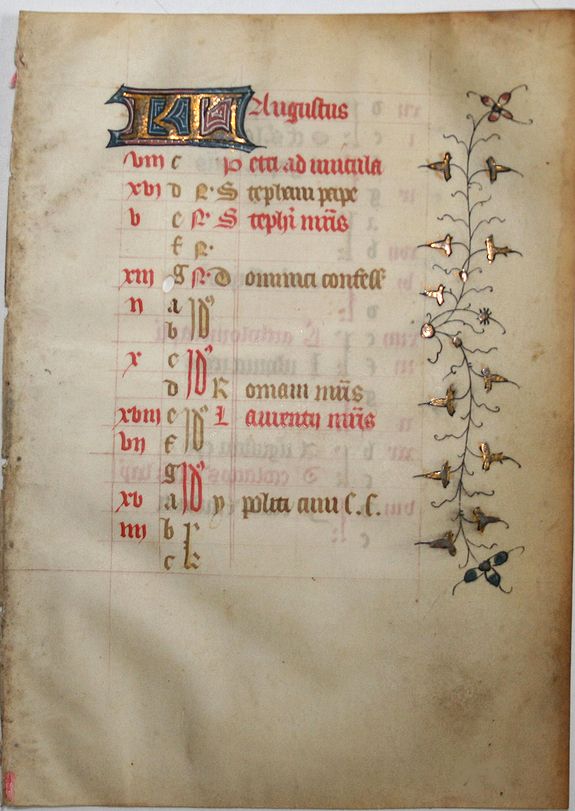 KL Augustus
viii c P etri ad vincula
xvi d N. S tephani pape
v e N. S tephi mris
f N.
xiii g N. D ominici confess
ii a Id9
b
x c Id9
d R omani mris
xviii e Id9 L aurentii mris
vii f
g Id9
xv a y politi cum s. s.
iiii b
c kl